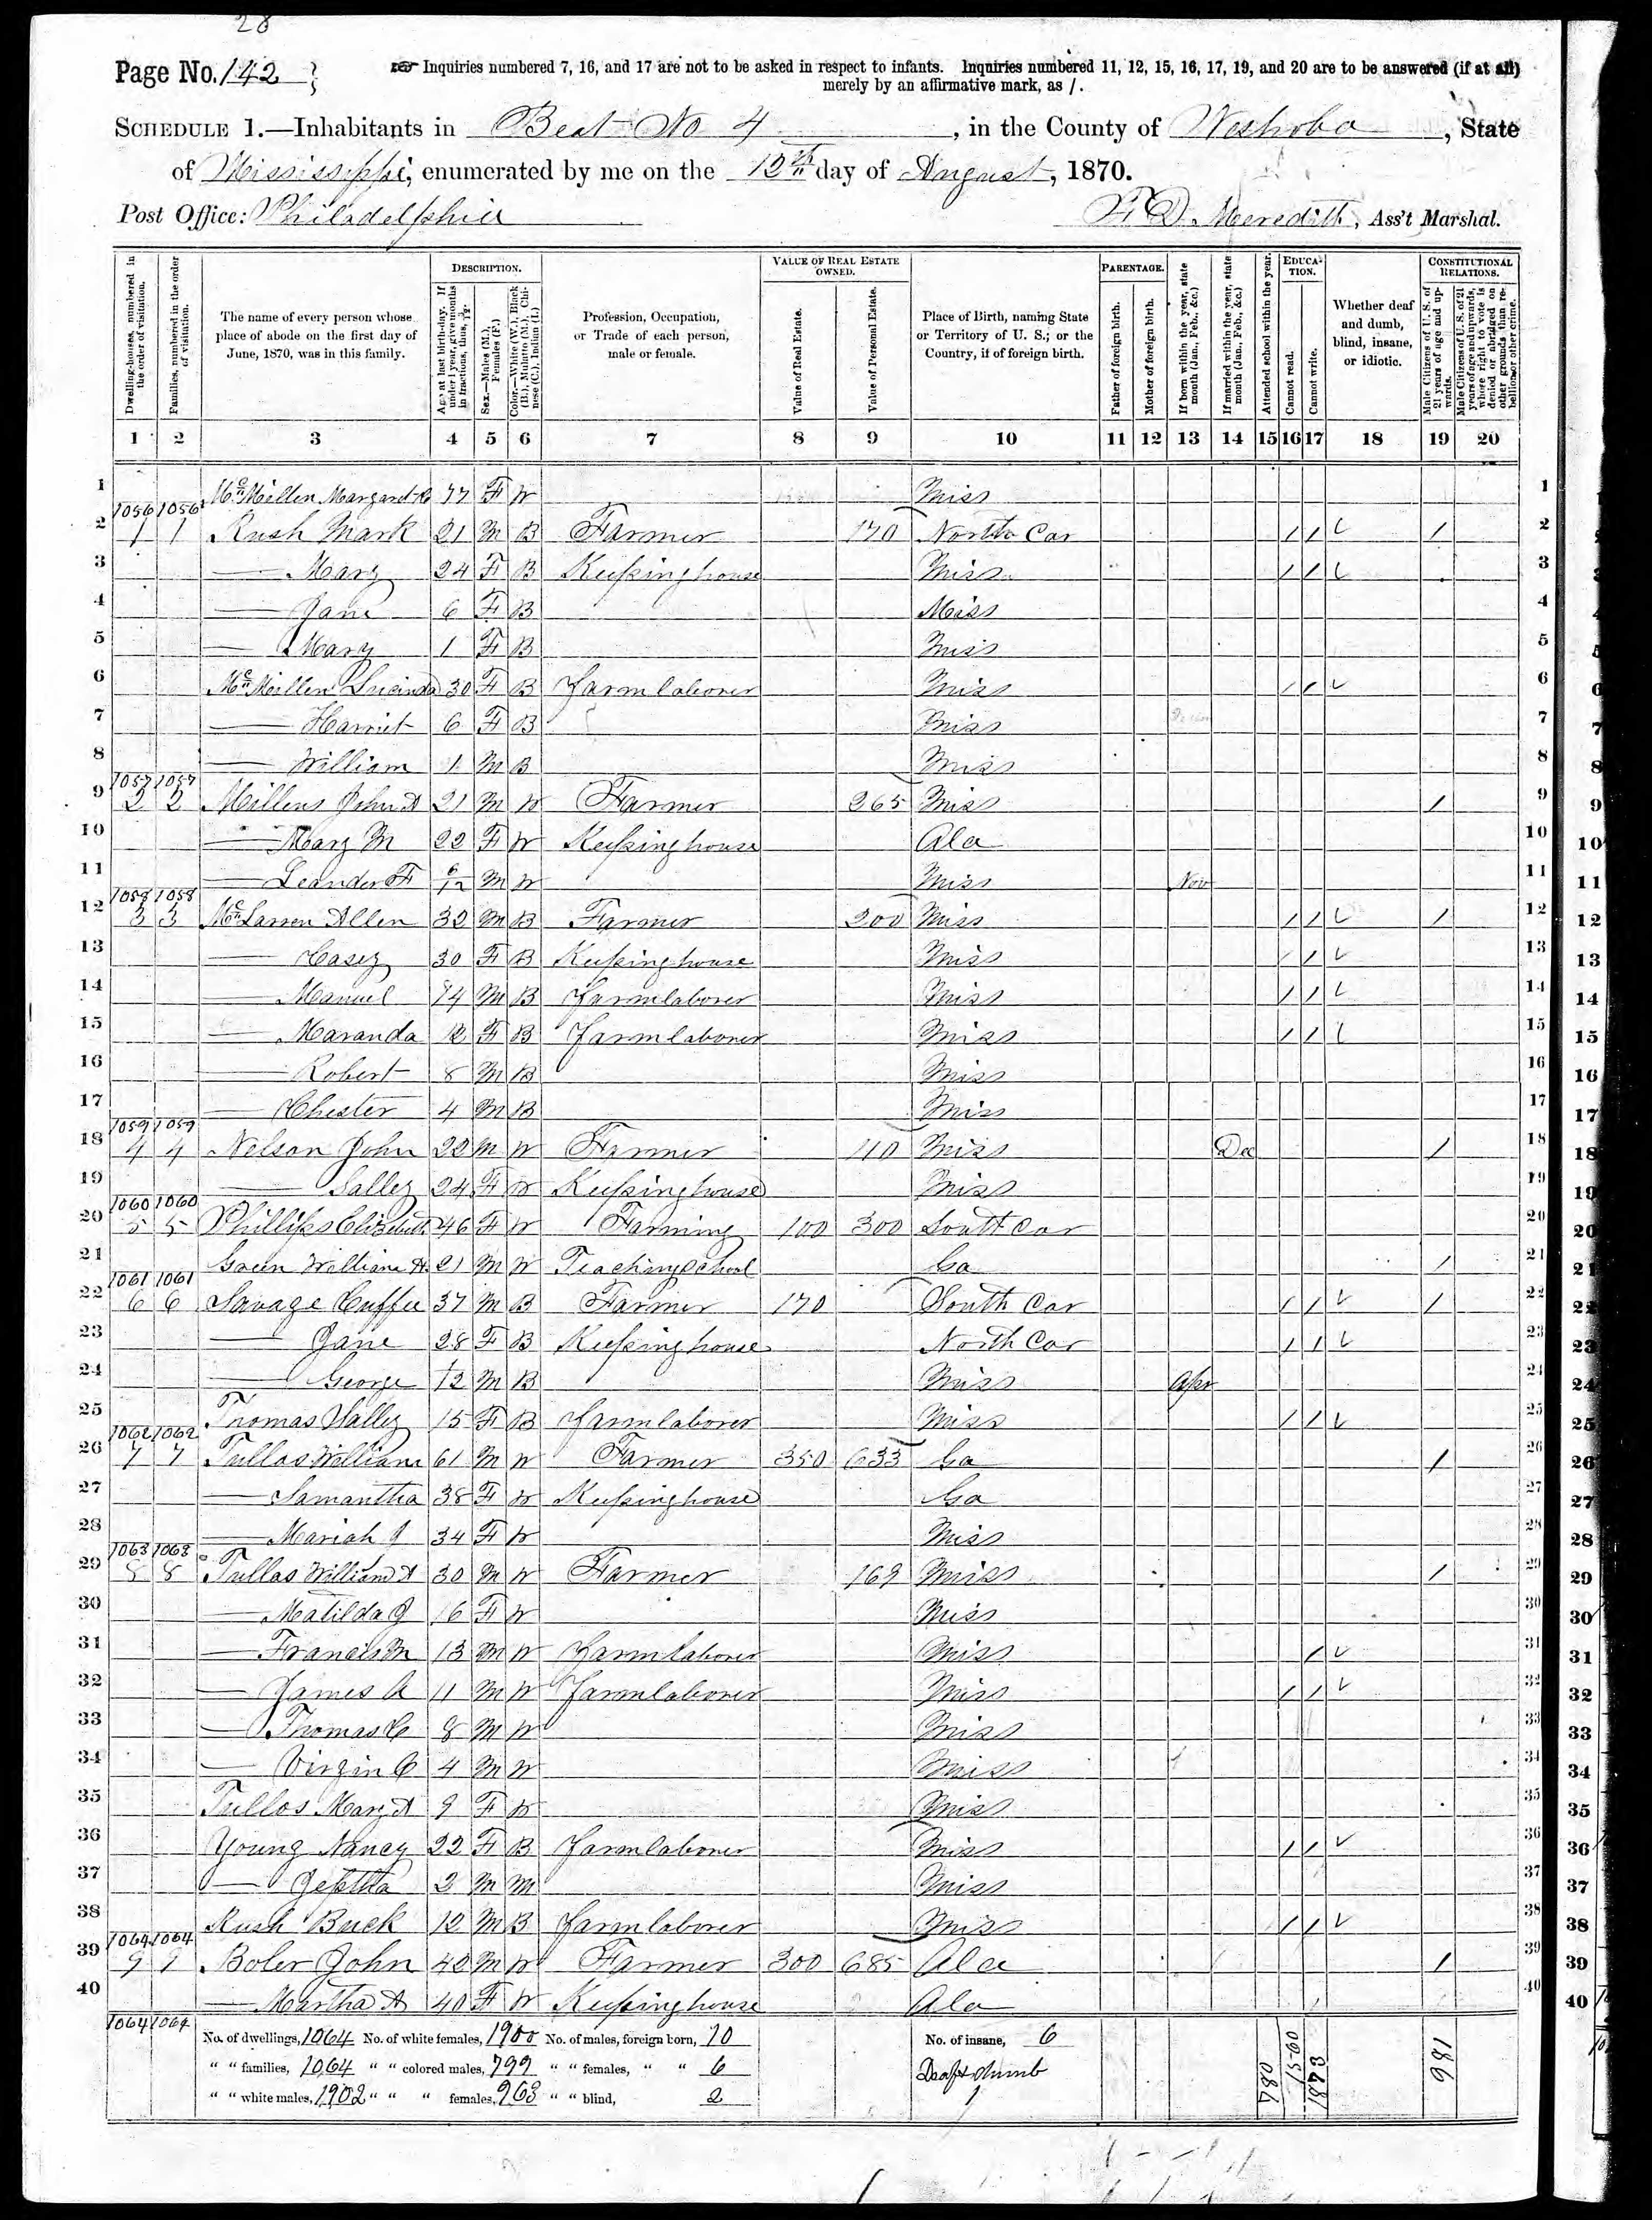 28
Page No. 142
☞ Inquiries numbered 7, 16, and 17 are not to be asked in respect to infants. Inquiries numbered 11, 12, 15, 16, 17, 19, and 20 are to be answered (if at all)
merely by an affirmative mark, as /.
SCHEDULE 1.—Inhabitants in Beat No 4, in the County of Neshoba, State
of Mississippi, enumerated by me on the 12th day of August, 1870.
Post Office: Philadelphia
F D Meredith, Ass't Marshal.
Dwelling-houses, numbered in the order of visitation.
Families, numbered in the order of visitation.
The name of every person whose place of abode on the first day of June, 1870, was in this family.
DESCRIPTION.
Age at last birth-day. If under 1 year, give months in fractions, thus, 3/12.
Sex.—Males (M.), Females (F.)
Color.—White (W.), Black (B.), Mulatto (M.), Chinese (C.), Indian (I.)
Profession, Occupation, or Trade of each person, male or female.
VALUE OF REAL ESTATE OWNED.
Value of Real Estate.
Value of Personal Estate.
Place of Birth, naming State or Territory of U. S.; or the Country, if of foreign birth.
PARENTAGE.
Father of foreign birth.
Mother of foreign birth.
If born within the year, state month (Jan., Feb., &c.)
If married within the year, state month (Jan., Feb., &c.)
Attended school within the year.
EDUCATION.
Cannot read.
Cannot write.
Whether deaf and dumb, blind, insane, or idiotic.
CONSTITUTIONAL RELATIONS.
Male Citizens of U. S. of 21 years of age and upwards.
Male Citizens of U. S. of 21 years of age and upwards, whose right to vote is denied or abridged on other grounds than rebellion or other crime.
1 2 3 4 5 6 7 8 9 10 11 12 13 14 15 16 17 18 19 20
1 McMillen Margaret 77 F W Miss 1
1056 1056
2 1 1 Rush Mark 21 M B Farmer 170 North Car / / / 2
3 — Mary 24 F B Keeping house Miss / / 3
4 — Jane 6 F B Miss 4
5 — Mary 1 F B Miss 5
6 McMillen Lucinda 30 F B Farm laborer Miss / / 6
7 — Harriet 6 F B Miss 7
8 — William 1 M B Miss 8
1057 1057
9 2 2 Millens John A 21 M W Farmer 265 Miss / 9
10 — Mary M 22 F W Keeping house Ala 10
11 — Leander F 6/12 M W Miss Nov 11
1058 1058
12 3 3 McLarren Allen 32 M B Farmer 200 Miss / / / 12
13 — Casey 30 F B Keeping house Miss / / 13
14 — Manuel 14 M B Farm laborer Miss / / 14
15 — Maranda 12 F B Farm laborer Miss / / 15
16 — Robert 8 M B Miss 16
17 — Chester 4 M B Miss 17
1059 1059
18 4 4 Nelson John 22 M W Farmer 110 Miss Dec / 18
19 — Salley 24 F W Keeping house Miss 19
1060 1060
20 5 5 Phillips Elizabeth 46 F W Farming 100 300 South Car 20
21 Green William H. 21 M W Teaching School Ga / 21
1061 1061
22 6 6 Savage Cuffee 37 M B Farmer 170 South Car / / / 22
23 — Jane 28 F B Keeping house North Car / / 23
24 — George 1/12 M B Miss Apr 24
25 Thomas Salley 15 F B Farm laborer Miss / / 25
1062 1062
26 7 7 Tullos William 61 M W Farmer 350 633 Ga / 26
27 — Samantha 38 F W Keeping house Ga 27
28 — Mariah J 34 F W Miss 28
1063 1063
29 8 8 Tullos William A 30 M W Farmer 169 Miss / 29
30 — Matilda J 16 F W Miss 30
31 — Francis M 13 M W Farm laborer Miss / 31
32 — James A 11 M W Farm laborer Miss / / 32
33 — Thomas C 8 M W Miss 33
34 — Virgin C 4 M W Miss 34
35 Tullos Mary A 9 F W Miss 35
36 Young Nancy 22 F B Farm laborer Miss / / 36
37 — Jeptha 2 M M Miss 37
38 Rush Buck 12 M B Farm laborer Miss / / 38
1064 1064
39 9 9 Boler John 42 M W Farmer 300 685 Ala / 39
40 — Martha A 40 F W Keeping house Ala 40
1064 1064
No. of dwellings, 1064 No. of white females, 1900 No. of males, foreign born, 10 No. of insane, 6
" " families, 1064 " " colored males, 799 " " females, " " 6 Deaf & dumb
" " white males, 1902 " " " females, 963 " " blind, 2 1
780 1560 1873 981